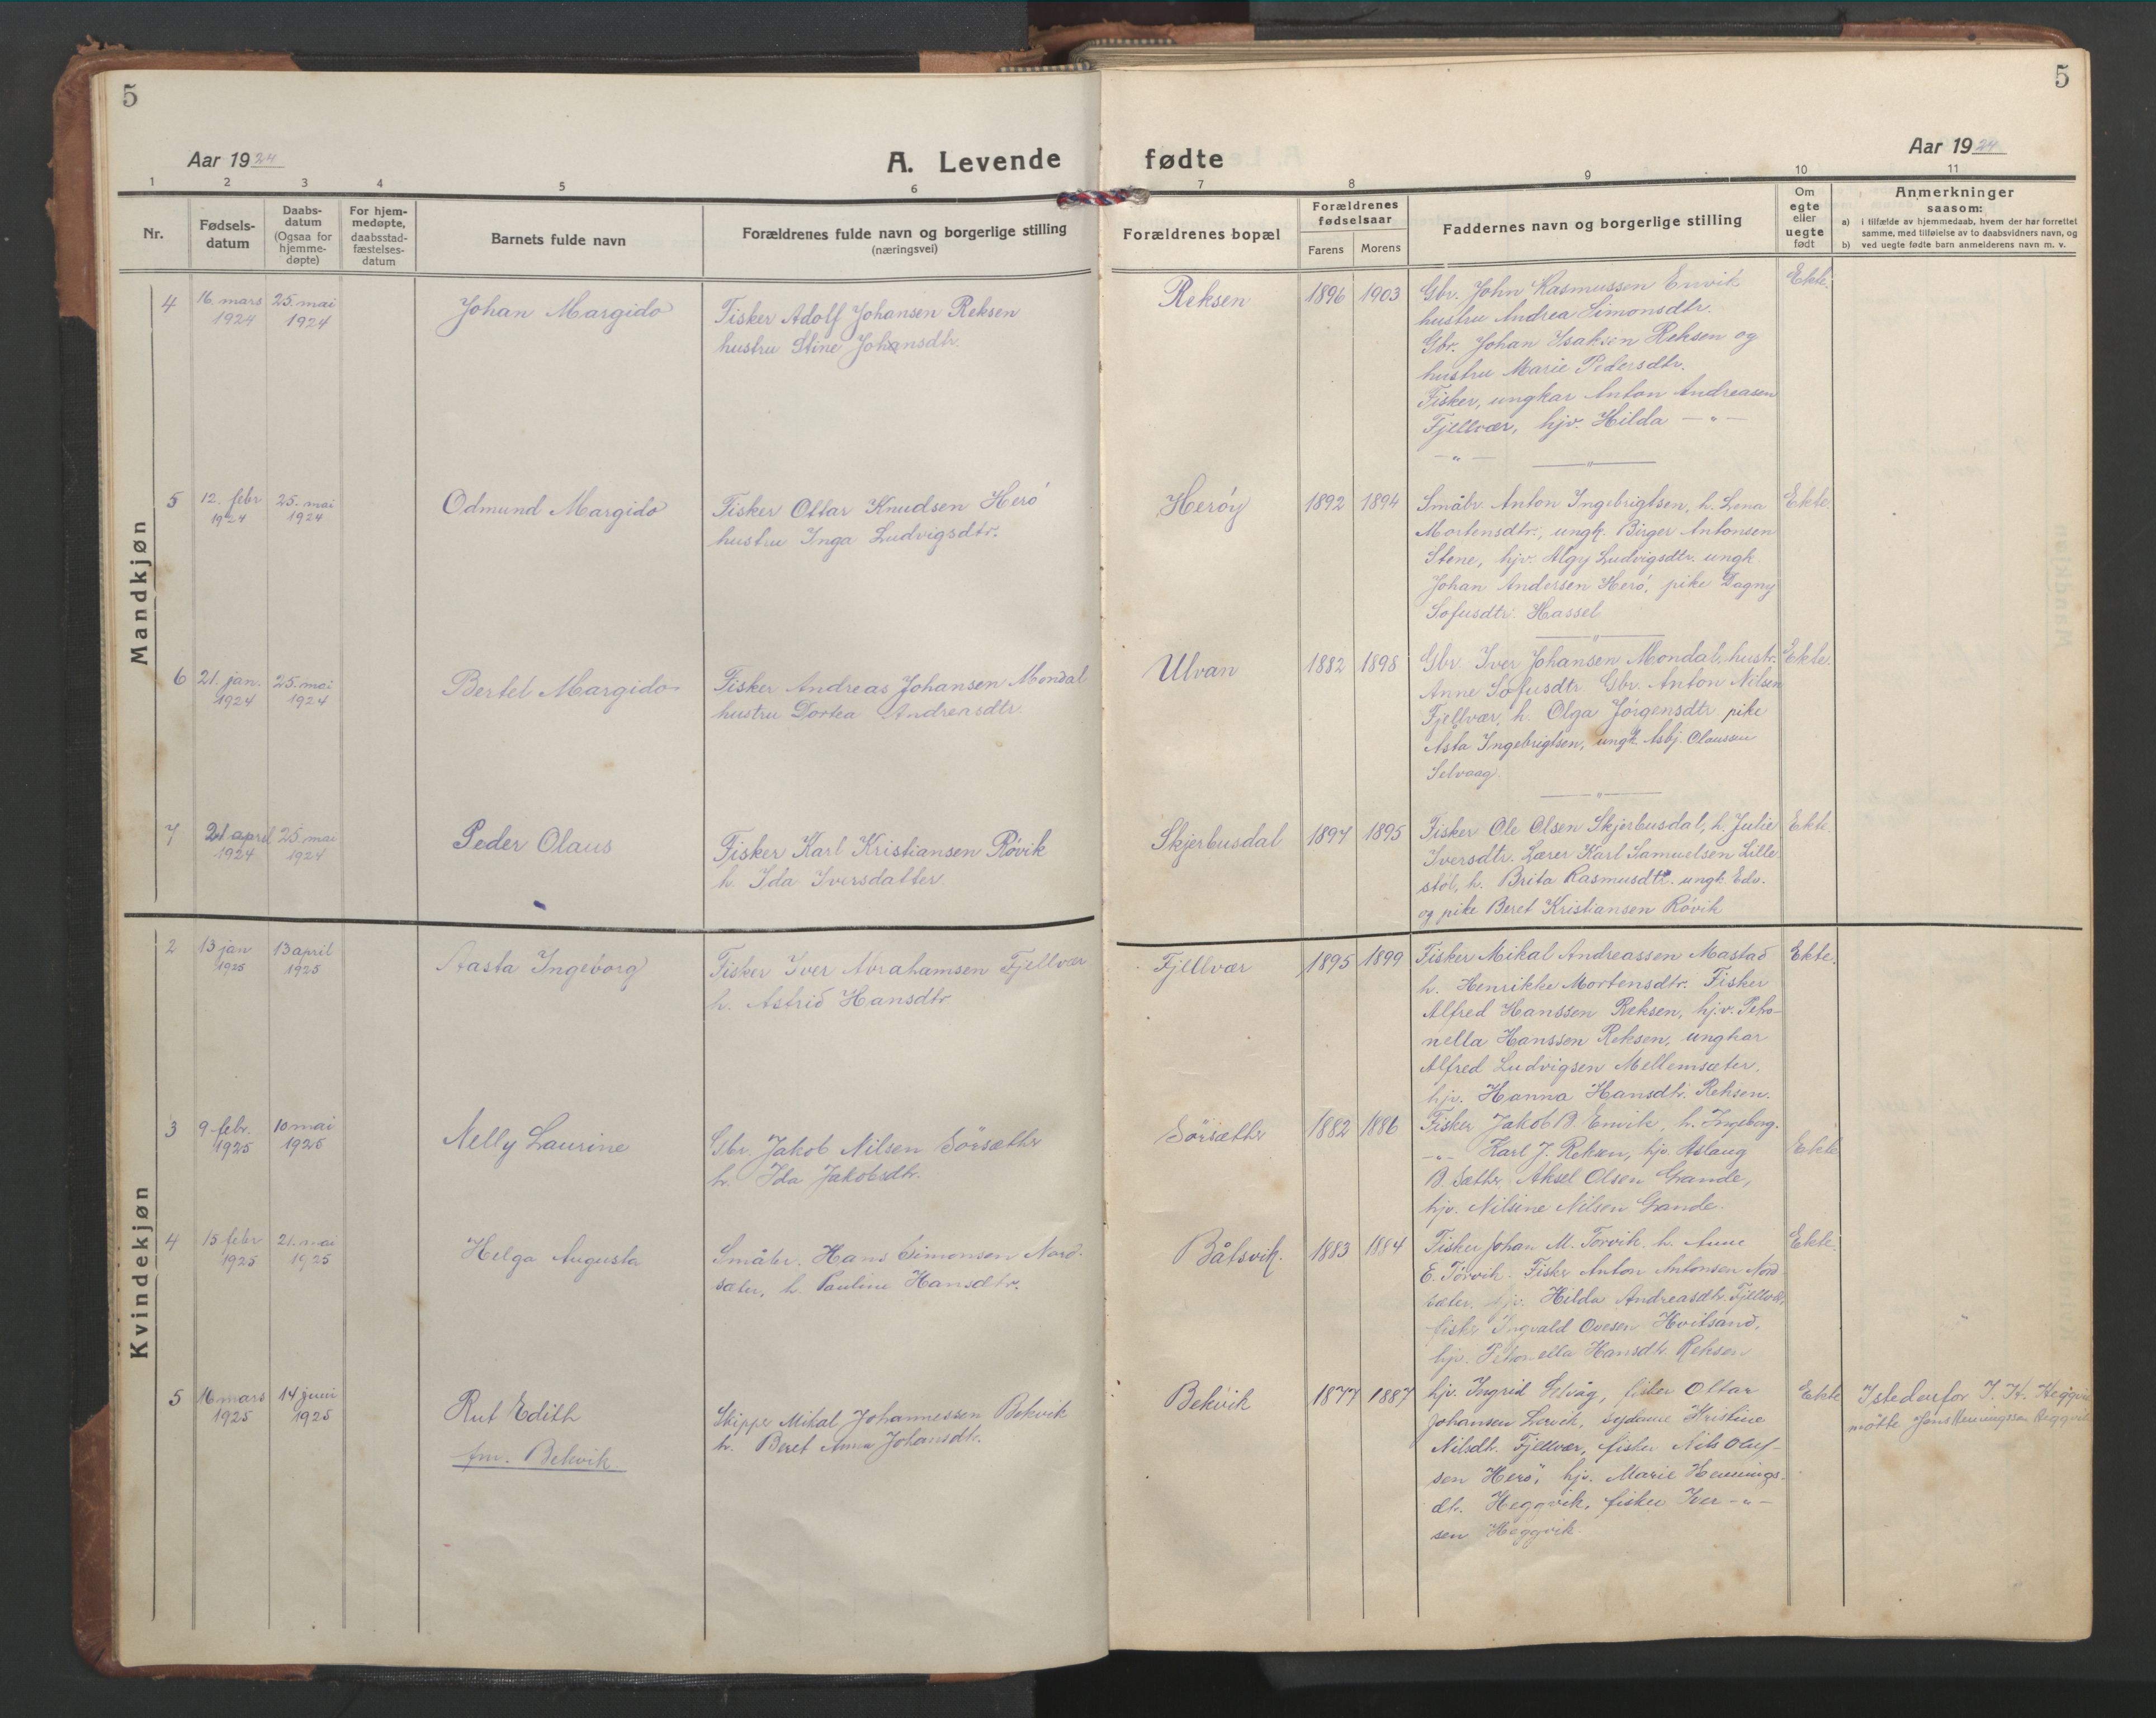 5
5
Aar 1924
A. Levende
fødte
Aar 1924
1 2 3 4 5 6 7 8 9 10 11
Nr.
Fødsels-
datum
Daabs-
datum
(Ogsaa for
hjemme-
døpte)
For hjem-
medøpte,
daabsstad-
fæstelses-
datum
Barnets fulde navn
Forældrenes fulde navn og borgerlige stilling
(næringsvei)
Forældrenes bopæl
Forældrenes
fødselsaar
Farens Morens
Faddernes navn og borgerlige stilling
Om
egte
eller
uegte
født
Anmerkninger
saasom:
a) i tilfælde av hjemmedaab, hvem der har forrettet
samme, med tilføielse av to daabsvidners navn, og
b) ved uegte fødte barn anmelderens navn m. v.
Mandkjøn
4
16. mars
1924
25. mai
1924
Johan Margido
Fisker Adolf Johansen Reksen
hustru Stine Johansdtr.
Reksen
1896 1903
Gbr. John Rasmussen Envik
hustru Andrea Simonsdtr.
Gbr. Johan Isaksen Reksen og
hustru Marie Pedersdtr.
Fisker, ungkar Anton Andreasen
Fjellvær, hjv. Hilda — " —
— " —
Ekte.
5
12. febr
1924
25. mai
1924
Odmund Margido
Fisker Ottar Knudsen Herö
hustru Inga Ludvigsdtr.
Heröy
1892 1894
Småbr. Anton Ingebrigtsen, h. Lena
Mortensdtr., ungk. Birger Antonsen
Stene, hjv. Algy Ludvigsdtr. ungk
Johan Andersen Herö, pike Dagny
Sofusdtr. Hassel
Ekte.
6
21. jan.
1924
25. mai
1924
Bertel Margido
Fisker Andreas Johansen Mondal
hustru Dortea Andreasdtr.
Ulvan
1882 1898
Gbr. Iver Johansen Mondal, hustr.
Anne Sofusdtr. Gbr. Anton Nilsen
Fjellvær, h. Olga Jörgensdtr. pike
Asta Ingebrigtsen, ungk. Asbj. Olaussen
Selvaag.
Ekte.
7
21 april
1924
25 mai
1924
Peder Olaus
Fisker Karl Kristiansen Røvik
h. Ida Iversdatter
Skjerbusdal
1897 1895
Fisker Ole Olsen Skjerbusdal, h. Julie
Iversdtr. Lærer Karl Samuelsen Lille
støl, h. Brita Rasmusdtr. ungk. Edv.
og pike Beret Kristiansen Røvik
Ekte.
Kvindekjøn
2
13 jan
1925
13 april
1925
Aasta Ingeborg
Fisker Iver Abrahamsen Fjellvær
h. Astrid Hansdtr.
Fjellvær
1895 1899
Fisker Mikal Andreassen Mastad
h. Henrikke Mortensdtr. Fisker
Alfred Hanssen Reksen, hjv. Petro-
nella Hanssen Reksen, ungkar
Alfred Ludvigsen Mellemsæter,
hjv. Hanna Hansdtr. Reksen.
Ekte.
3
9 febr.
1925
10 mai
1925
Nelly Laurine
Gbr. Jakob Nilsen Sörsæther
h. Ida Jakobsdtr.
Sörsæther
1882 1886
Fisker Jakob B. Envik, h. Ingeborg.
— " — Karl J. Reksen, hjv. Aslaug
B. Sæther, Aksel Olsen Grande,
hjv. Nilsine Nilsen Grande.
Ekte
4
15 febr
1925
21. mai
1925
Helga Augusta
Småbr. Hans Simonsen Nord-
sæter, h. Pauline Hansdtr.
Båtsvik.
1883 1884
Fisker Johan M. Torvik, h. Anne
E. Torvik. Fisker Anton Antonsen Nord-
sæter, hjv. Hilda Andreasdtr. Fjellvær,
fisker Ingvald Ovesen Hvitsand,
hjv. Petronella Hansdtr. Reksen
Ekte.
5
16 mars
1925
14 juni
1925
Rut Edith
fm. Bekvik
Skipper Mikal Johannessen Bekvik
h. Beret Anna Johansdtr.
Bekvik
1877 1887
hjv. Ingrid Selvåg, fisker Ottar
Johansen Lervik, sydame Kristine
Nilsdtr. Fjellvær, fisker Nils Oluf-
sen Herö, hjv. Marie Hennings-
dtr. Heggvik, fisker Iver — " —
sen Heggvik
Ekte
Istedenfor I. H. Heggvik
møtte Jens Henningssen Heggvik